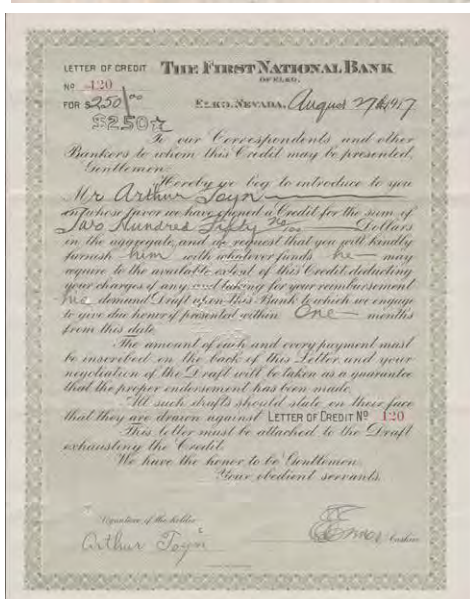 LETTER OF CREDIT THE FIRST NATIONAL BANK
OF ELKO.
No 120
FOR $250/00 ELKO, NEVADA, August 27th 1917
$250☆
To our Correspondents and other
Bankers to whom this Credit may be presented,
Gentlemen:
Hereby we beg to introduce to you
Mr Arthur Toyn
in whose favor we have opened a Credit for the sum of
Two Hundred Fifty no/00 Dollars
in the aggregate, and we request that you will kindly
furnish him with whatever funds he may
require to the available extent of this Credit, deducting
your charges if any and taking for your reimbursement
his demand Draft upon this Bank to which we engage
to give due honor if presented within One months
from this date.
The amount of each and every payment must
be inscribed on the back of this Letter, and your
negotiation of the Draft will be taken as a guarantee
that the proper endorsement has been made.
All such drafts should state on their face
that they are drawn against LETTER OF CREDIT No 120
This letter must be attached to the Draft
exhausting the Credit.
We have the honor to be Gentlemen,
Your obedient servants,
Signature of the holder
Arthur Toyn Cashier